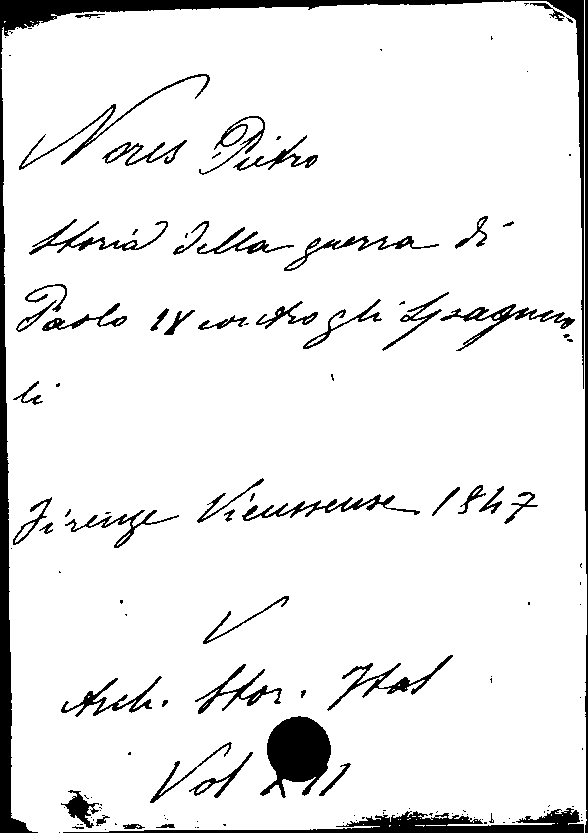 Nores Pietro
Storia della guerra di
Paolo IV contro gli Spagnuo=
li
Firenze Vieusseux 1847
V
Arch. Stor. Ital
Vol XII